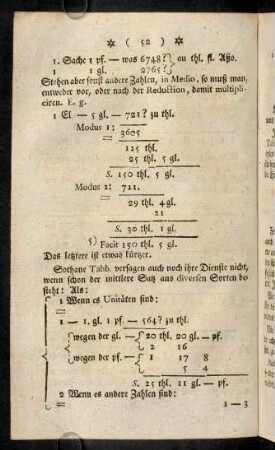 * ( 52 ) *
1. Sache 1 pf. — was 6748? } an thl. fl. Asso.
1 1 gl. 2765? }
Stehen aber sonst andere Zahlen, in Medio, so muß man,
entweder vor, oder nach der Reduction, damit multipli-
ciren. E. g.
1 El — 5 gl. — 721? zu thl.
Modus 1: 3605
125 thl.
25 thl. 5 gl.
S. 150 thl. 5 gl.
Modus 2: 721.
29 thl. 4 gl.
21
S. 30 thl. 1 gl.
5) Facit 150 thl. 5 gl.
Das letztere ist etwas kürtzer.
Sothane Tabb. versagen auch noch ihre Dienste nicht,
wenn schon der mittlere Satz aus diversen Sorten be-
stehet: Als:
1 Wenn es Unitäten sind:
1 — 1. gl. 1 pf. — 564? zu thl.
wegen der gl. — { 20 thl. 20 gl. — pf.
2 16
wegen der pf. — { 1 17 8
5 4
S. 25 thl. 11 gl. — pf.
2 Wenn es andere Zahlen sind:
1 — 3